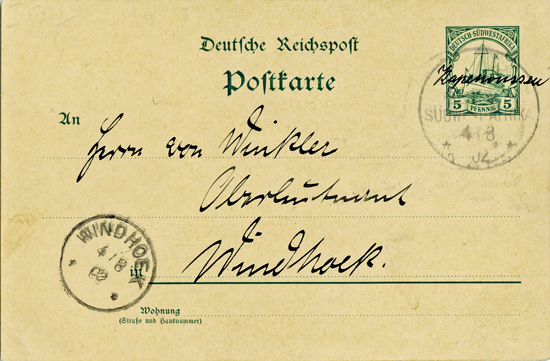 Deutsche Reichspost
Postkarte
DEUTSCH-SÜDWESTAFRIKA
5 PFENNIG 5
4/8
02
An
Herrn von Winkler
Oberleutnant
in Windhoek.
WINDHOEK
4/8
02
Wohnung
(Straße und Hausnummer)